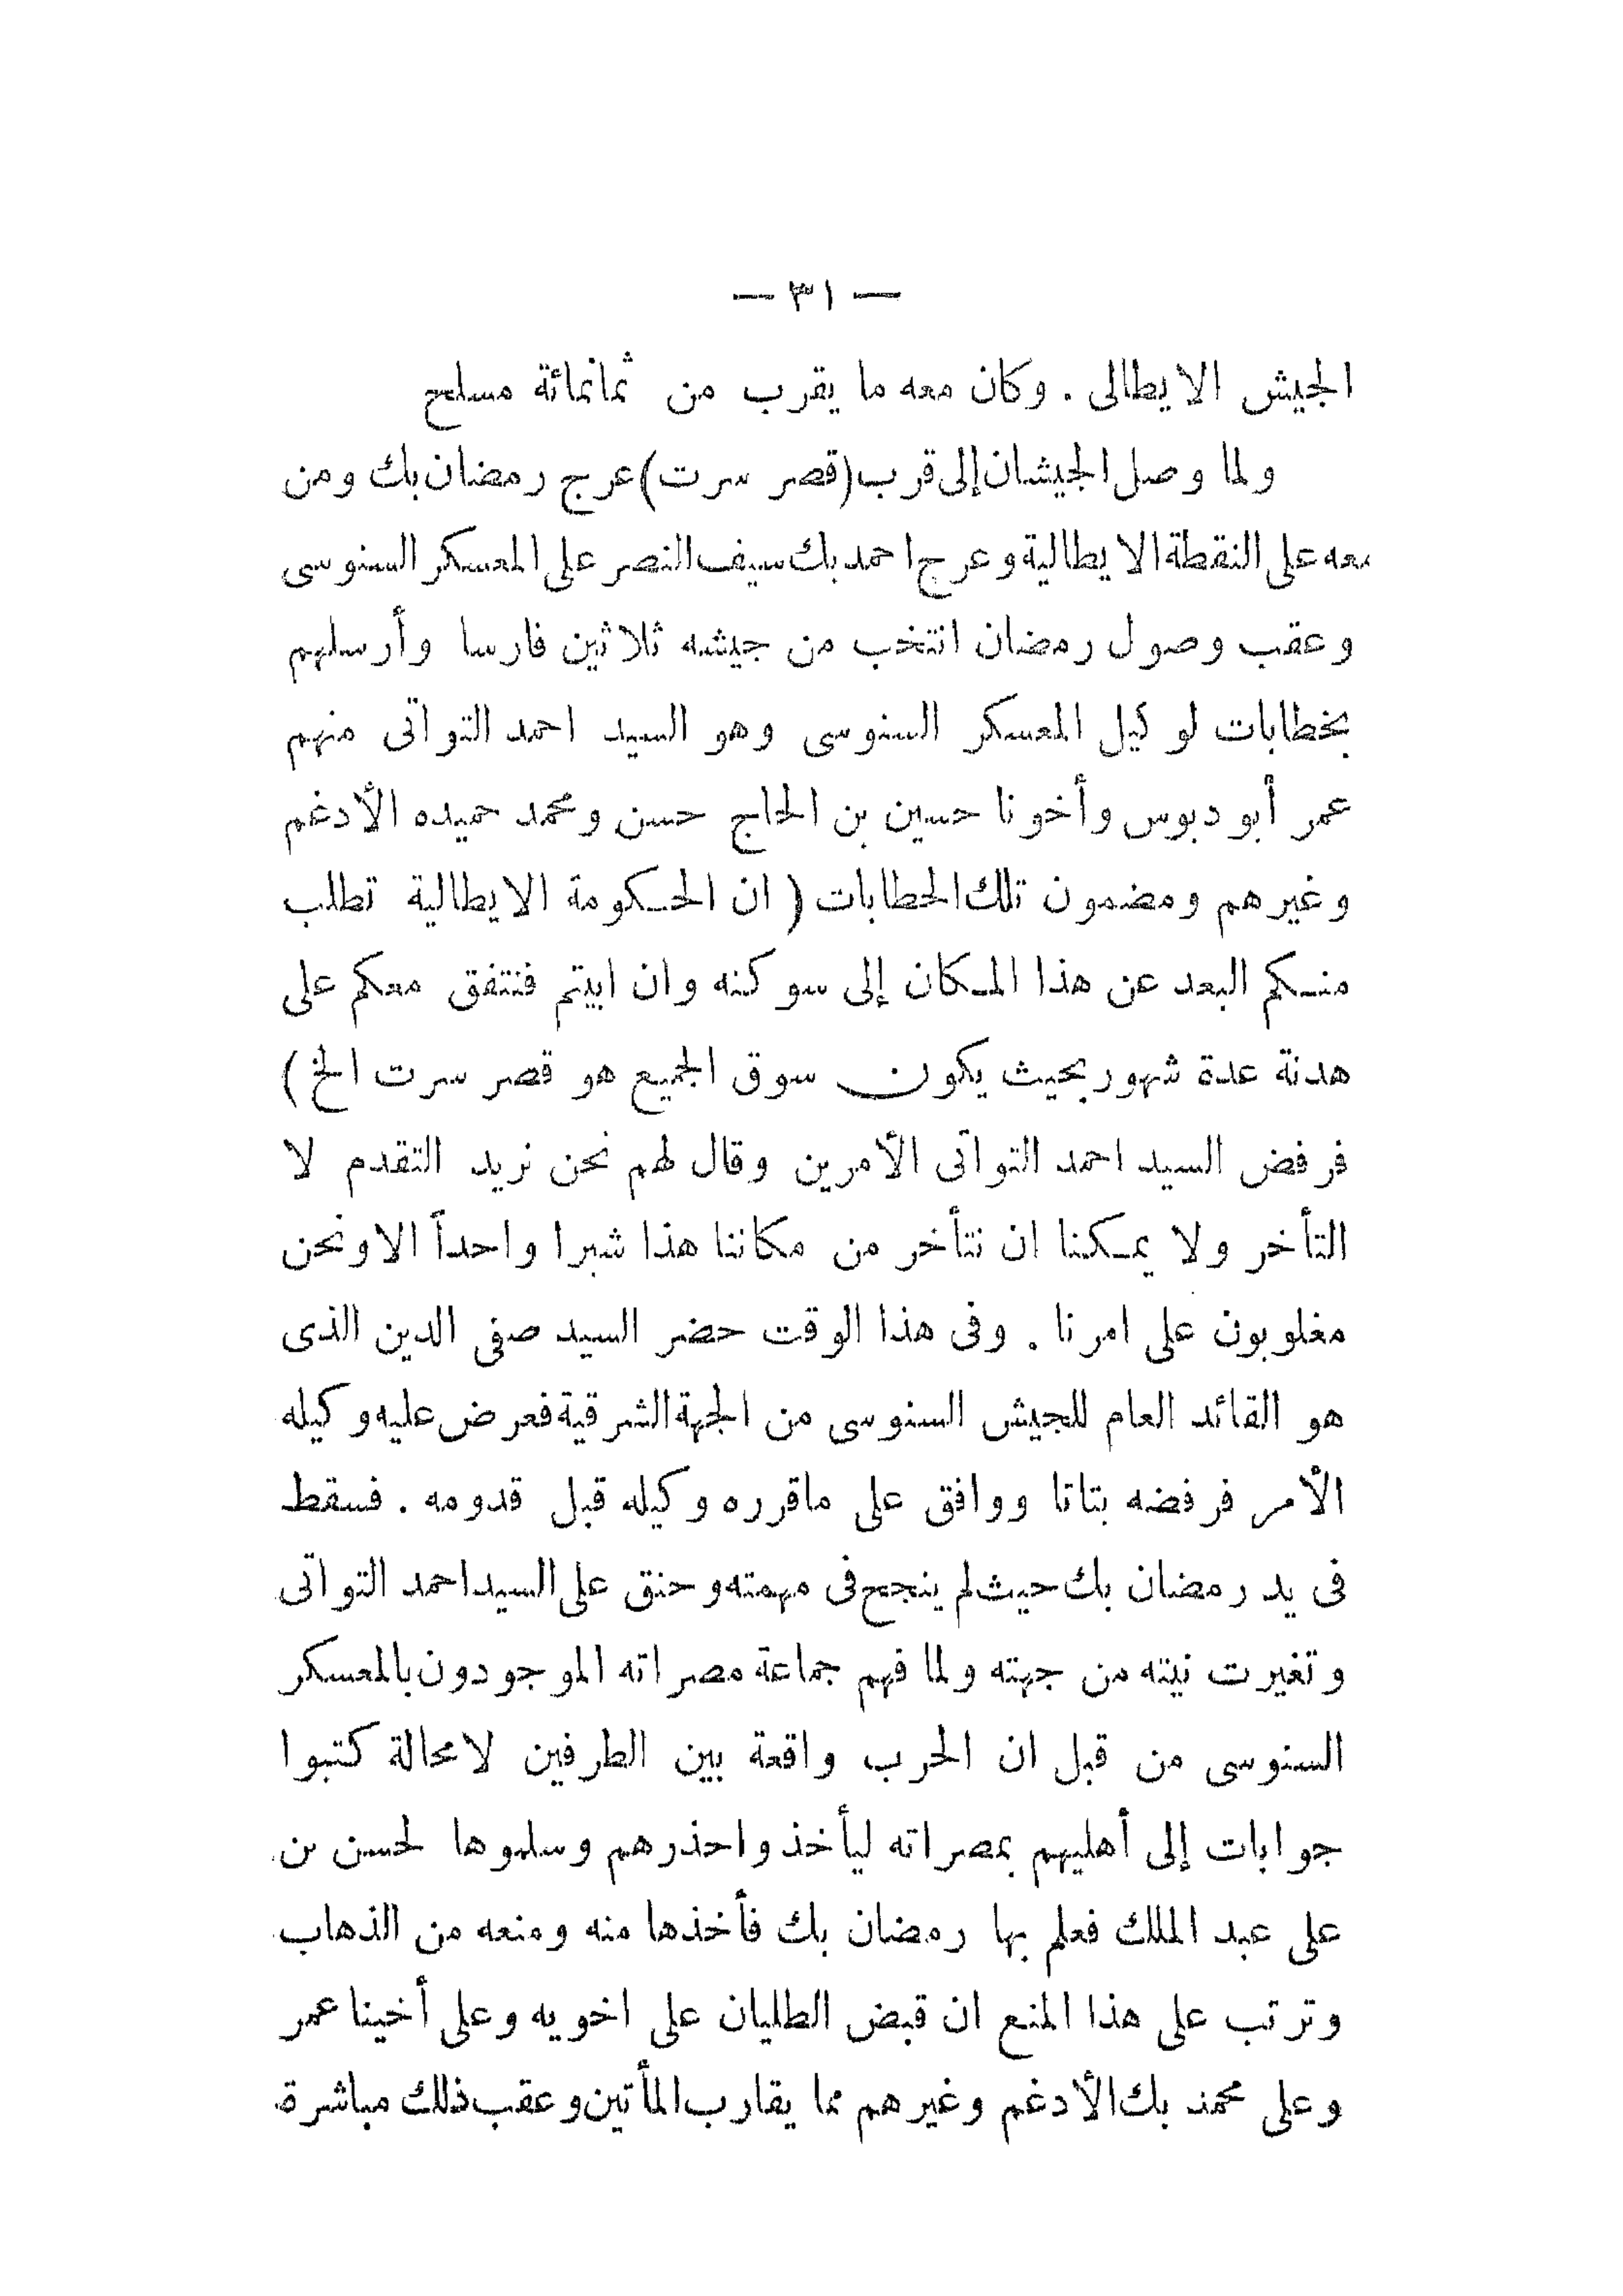 — ٣١ —
الجيش الايطالى . وكان معه ما يقرب من ثمانمائة مسلح
ولما وصل الجيشان إلى قرب (قصر سرت) عرج رمضان بك ومن
معه على النقطة الايطالية وعرج احمد بك سيف النصر على المعسكر السنوسى
وعقب وصول رمضان انتخب من جيشه ثلاثين فارسا وأرسلهم
بخطابات لوكيل المعسكر السنوسى وهو السيد احمد التواتى منهم
عمر أبو دبوس وأخونا حسين بن الحاج حسن ومحمد حميده الأدغم
وغيرهم ومضمون تلك الخطابات ( ان الحكومة الايطالية تطلب
منكم البعد عن هذا المكان إلى سوكنه وان ابيتم فنتفق معكم على
هدنة عدة شهور بحيث يكون سوق الجميع هو قصر سرت الخ )
فرفض السيد احمد التواتى الأمرين وقال لهم نحن نريد التقدم لا
التأخر ولا يمكننا ان نتأخر من مكاننا هذا شبرا واحداً الا ونحن
مغلوبون على امرنا . وفى هذا الوقت حضر السيد صفى الدين الذى
هو القائد العام للجيش السنوسى من الجهة الشرقية فعرض عليه وكيله
الأمر فرفضه بتاتا ووافق على ماقرره وكيله قبل قدومه . فسقط
فى يد رمضان بك حيث لم ينجح فى مهمته وحنق على السيد احمد التواتى
وتغيرت نيته من جهته ولما فهم جماعة مصراته الموجودون بالمعسكر
السنوسى من قبل ان الحرب واقعة بين الطرفين لامحالة كتبوا
جوابات إلى أهليهم بمصراته ليأخذوا حذرهم وسلموها لحسن بن
على عبد الملك فعلم بها رمضان بك فأخذها منه ومنعه من الذهاب
وترتب على هذا المنع ان قبض الطليان على اخويه وعلى أخينا عمر
وعلى محمد بك الأدغم وغيرهم مما يقارب المأتين وعقب ذلك مباشرة